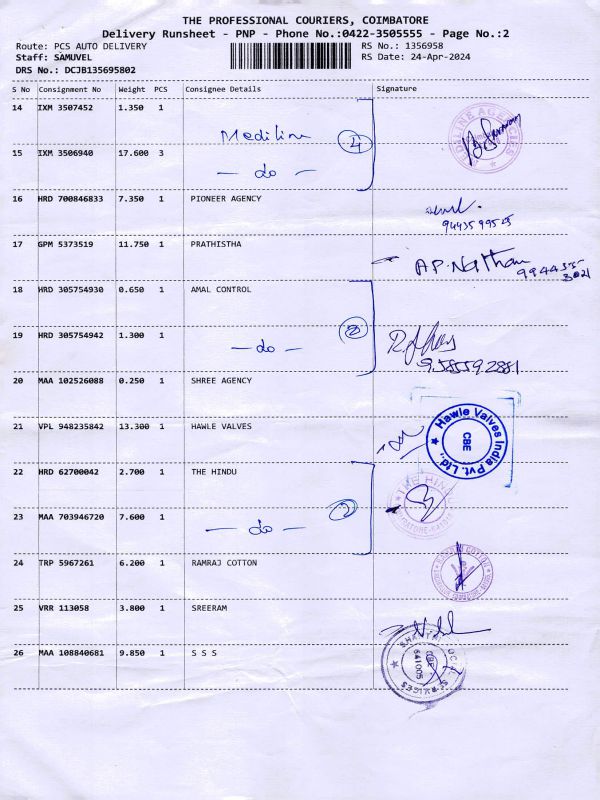 THE PROFESSIONAL COURIERS, COIMBATORE
Delivery Runsheet - PNP - Phone No.:0422-3505555 - Page No.:2
Route: PCS AUTO DELIVERY RS No.: 1356958
Staff: SAMUVEL RS Date: 24-Apr-2024
DRS No.: DCJB135695802
S No Consignment No Weight PCS Consignee Details Signature
14 IXM 3507452 1.350 1 Mediline 4
15 IXM 3506940 17.600 3 — do —
16 HRD 700846833 7.350 1 PIONEER AGENCY
17 GPM 5373519 11.750 1 PRATHISTHA A.P. Nathan
18 HRD 305754930 0.650 1 AMAL CONTROL 2
19 HRD 305754942 1.300 1 — do — 9585592881
20 MAA 102526088 0.250 1 SHREE AGENCY
21 VPL 948235842 13.300 1 HAWLE VALVES Hawle Valves India Pvt. Ltd., CBE
22 HRD 62700042 2.700 1 THE HINDU THE HINDU
23 MAA 703946720 7.600 1 — do — 2
24 TRP 5967261 6.200 1 RAMRAJ COTTON RAMRAJ COTTON
25 VRR 113058 3.800 1 SREERAM
26 MAA 108840681 9.850 1 S S S CBE 641005 SERVICES